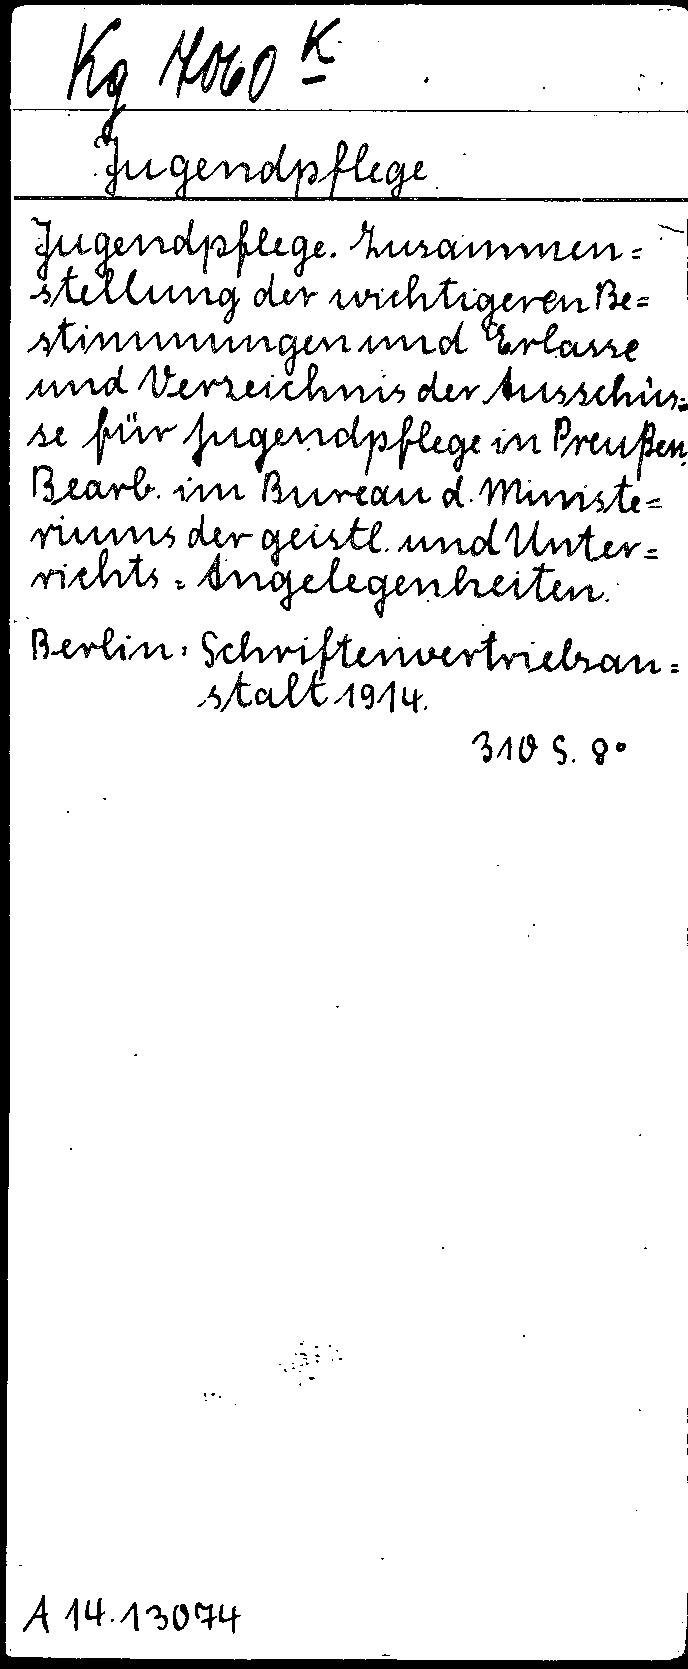 Kg 7060 K
Jugendpflege.
Jugendpflege. Zusammen=
stellung der wichtigeren Be=
stimmungen und Erlasse
und Verzeichnis der Ausschüs=
se für Jugendpflege in Preußen.
Bearb. im Bureau d. Ministe=
riums der geistl. und Unter=
richts=Angelegenheiten.
Berlin: Schriftenvertriebsan=
stalt 1914.
310 S. 8°
A 14.13074